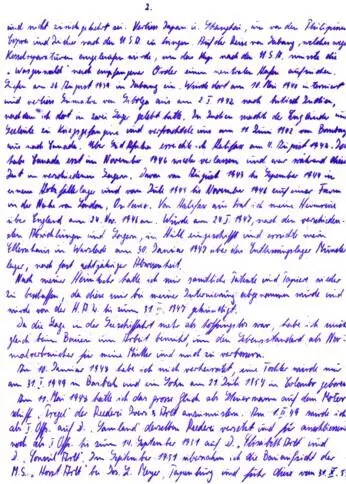 2.
und nicht zurückgekehrt sei. Verliess Japan u. Shanghai, um von den Philippinen
Copra und Zucker nach den U.S.A. zu bringen. Auf der Reise von Sabang, welches wegen
Kesselreparaturen angelaufen wurde, um das Kap nach den U.S.A. musste die
"Wasgenwald" nach empfangener Order einen neutralen Hafen aufsuchen.
Liefen am 28. August 1939 in Padang ein. Wurde dort am 10. Mai 1940 interniert
und verliess Sumatra von Sibolga aus am 1942 nach Britisch Indien,
nachdem ich dort in zwei Lager gelebt hatte. In Indien machte die Engländer uns
Seeleute zu Kriegsgefangene und verfrachtete uns am 11. Juni 1942 von Bombay
aus nach Canada. Über Südafrika erreichte ich Halifax am 4. August 1942.
habe Canada erst im November 1946 wieder verlassen und war während dieser
Zeit in verschiedenen Lagern. Davon von August 1943 bis September 1944 in
einem Holzfällerlager und vom Juli 1945 bis November 1946 auf einer Farm
in der Nähe von London, Ontario. Von Halifax aus trat ich meine Heimreise
über England am 24. Nov. 1946 an. Wurde am 24. I. 1947, nach den verschieden-
sten Abwicklungen und Lagern, in Hull eingeschifft und erreichte mein
Elternhaus in am 30. Januar 1947 über das Entlassungslager Munster-
lager, nach fast achtjähriger Abwesenheit.
Nach meiner Heimkehr hatte ich mir sämtliche Patente und Papiere wieder
zu beschaffen, da diese mir bei meiner Internierung abgenommen wurde und
wurde von der H.A.L. bis zum 31. 1947 gekündigt.
Da die Lage in der Seeschiffahrt mehr als hoffnungslos war, habe ich mich
gleich beim Bauern um Arbeit bemüht, um den Lebensstandard als Nor-
malverbraucher für meine Mutter und mich zu verbessern.
Am 10. Januar 1948 habe ich mich verheiratet, eine Tochter wurde mir
am 31. I. 1949 in und ein Sohn am 29. Juli 1954 in geboren.
Am 19. Mai 1948 hatte ich das grosse Glück als Steuermann auf dem Motor-
schiff, der Reederei anzumustern. Am 1. II. 49 wurde ich
als I. Offz. auf D. Samland derselben Reederei versetzt und für anschliessend
noch als I. Offz. bis zum 14. September 1951 auf D. Elisabeth Bolt und
D. Konsul Bolt. Im September 1951 übernahm ich die Bauaufsicht der
M.S. Horst Bolt bei Jos. L. Meyer, Papenburg und fuhr diese vom